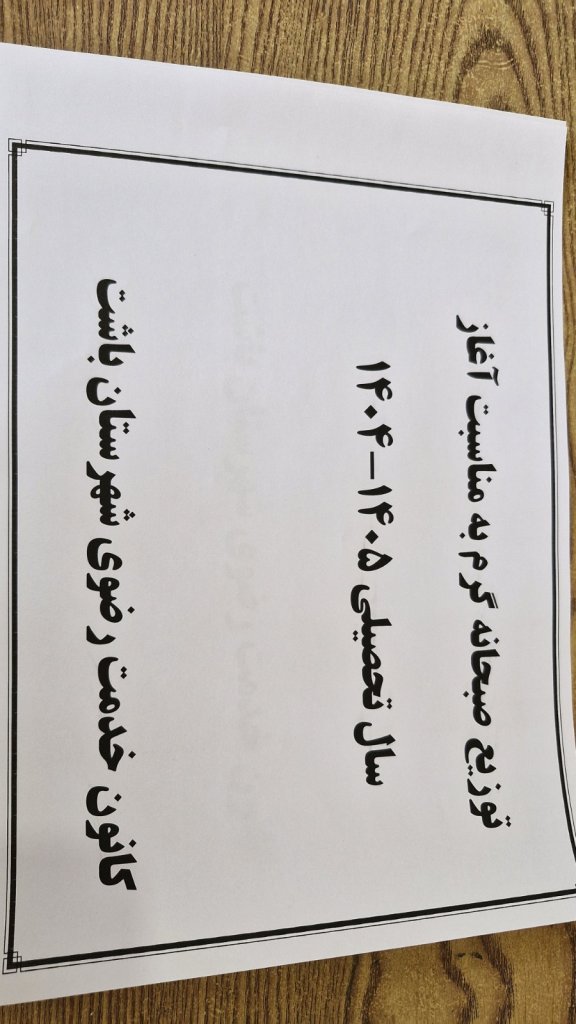 توزیع صبحانه گرم به مناسبت آغاز
سال تحصیلی ۱۴۰۵-۱۴۰۴
کانون خدمت رضوی شهرستان باشت